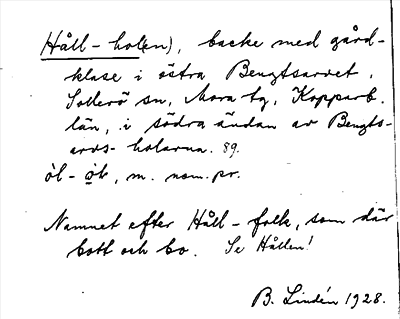 Håll-hol(en), backe med gård-
klase i östra Bengtsarvet,
Sollerö sn, Mora tg, Kopparb.
län, i södra ändan av Bengts-
arvs-holarna. 89.
òl-o̱l, m. nom. pr.
Namnet efter Håll-folk, som där
bott och bo. Se Hållen!
B. Lindén 1928.